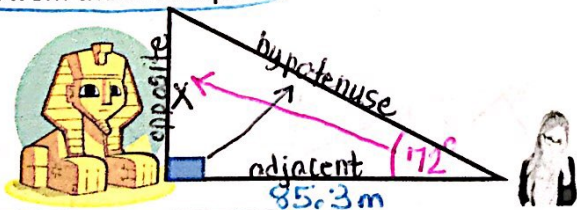 opposite
hypotenuse
X
adjacent
85.3m